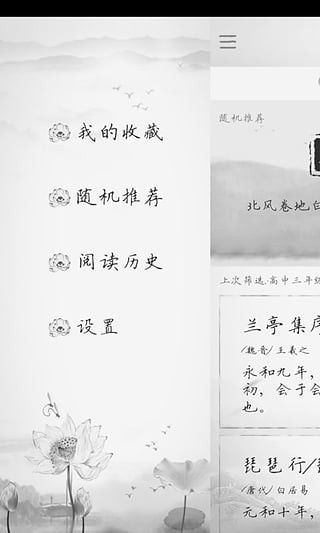 我的收藏
随机推荐
阅读历史
设置
随机推荐
北风卷地白
上次筛选:高中三年级
兰亭集序
/魏晋/ 王羲之
永和九年，
初，会于会
也。
琵琶行/
/唐代/ 白居易
元和十年，